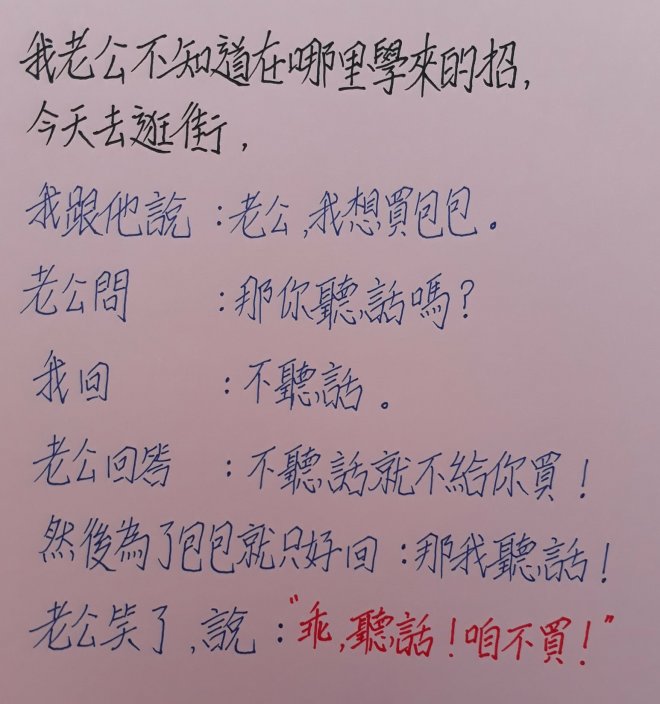 我老公不知道在哪里學來的招,
今天去逛街,
我跟他說:老公,我想買包包。
老公問:那你聽話嗎?
我回:不聽話。
老公回答:不聽話就不給你買!
然後為了包包就只好回:那我聽話!
老公笑了,說:"乖,聽話!咱不買!"